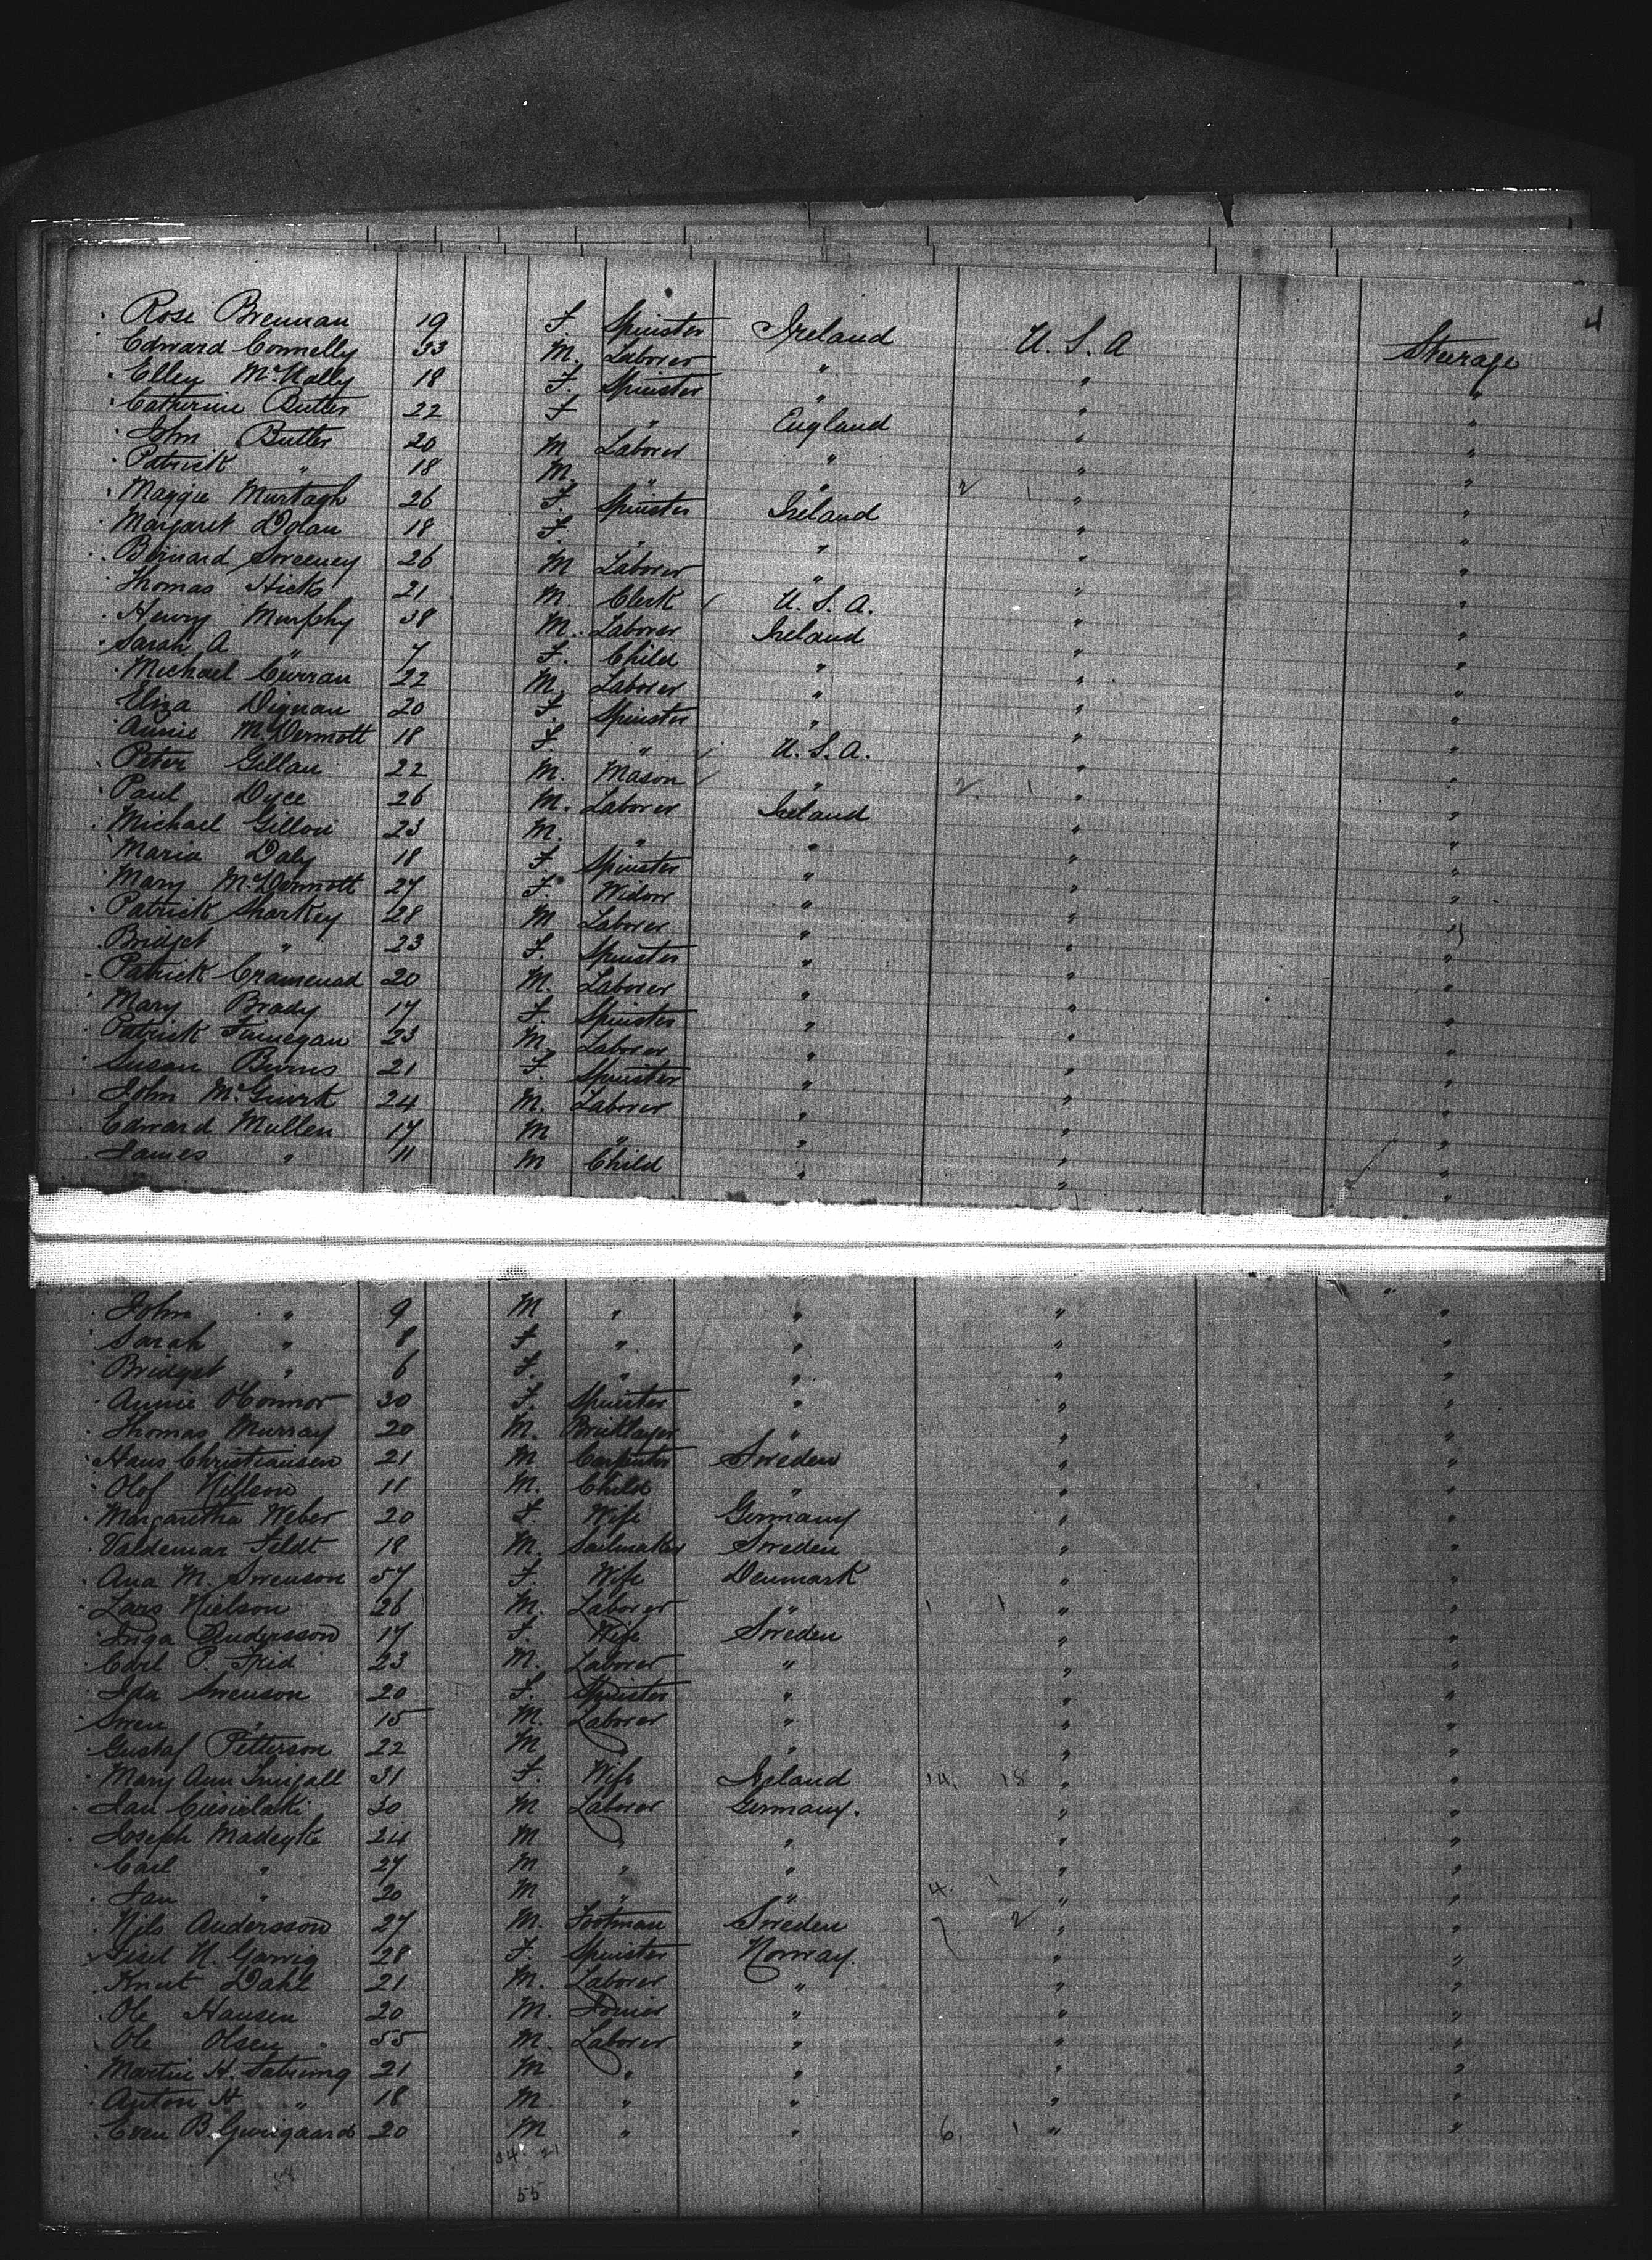 4
Rose Brennan 19 F. Spinster Ireland U.S.A Steerage
Edward Connelly 33 M. Laborer " " "
Elley McNally 18 F. Spinster " " "
Catherine Butler 22 F " England " "
John Butler 20 M Laborer " " "
Patrick " 18 M. " " 2 1 " "
Maggie Murtagh 26 F. Spinster Ireland " "
Margaret Dolan 18 F. " " " "
Bernard Sweeney 26 M Laborer " " "
Thomas Hicks 21 M Clerk U.S.A. " "
Henry Murphy 38 M. Laborer Ireland " "
Sarah A " 7 F. Child " " "
Michael Curran 22 M. Laborer " " "
Eliza Dignan 20 F. Spinster " " "
Annie McDermott 18 F. " U.S.A. " "
Peter Gillan 22 M. Mason " 2 1 " "
Paul Dyce 26 M. Laborer Ireland " "
Michael Gillon 23 M. " " " "
Maria Daly 18 F. Spinster " " "
Mary McDermott 27 F. Widow " " "
Patrick Sharkey 28 M Laborer " " "
Bridget " 23 F. Spinster " " "
Patrick 20 M. Laborer " " "
Mary Brady 17 F. Spinster " " "
Patrick Finnegan 23 M. Laborer " " "
Susan Burns 21 F. Spinster " " "
John McGuirk 24 M. Laborer " " "
Edward Mullen 17 M " " " "
James " 11 M Child " " "
John " 9 M " " " "
Sarah " 8 F " " " "
Bridget " 6 F. " " " "
Annie O'Connor 30 F. Spinster " " "
Thomas Murray 20 M. Bricklayer " " "
Hans Christiansen 21 M Carpenter Sweden " "
Olof Nillson 11 M. Child " " "
Margaretha Weber 20 F. Wife Germany " "
Valdemar Feldt 18 M. Sailmaker Sweden " "
Ana M. Swenson 57 F. Wife Denmark " "
Lars Nielson 26 M. Laborer " 1 1 " "
Inga Andersson 17 F. Wife Sweden " "
Carl P. 23 M. Laborer " " "
Ida Swenson 20 F. Spinster " " "
Swen " 15 M. Laborer " " "
Gustaf Petterson 22 M " " " "
Mary Ann 31 F. Wife Ireland 14. 18 " "
Jan Ciesielski 30 M Laborer Germany. " "
Joseph Madeyke 24 M " " " "
Carl " 27 M " " " "
Jan " 20 M " " 4. 1 " "
Nils Andersson 27 M. Footman Sweden 7 2 " "
N. 28 F. Spinster Norway. " "
Knut Dahl 21 M. Laborer " " "
Ole Hansen 20 M. Joiner " " "
Ole Olsen 55 M. Laborer " " "
Martin H. 21 M " " " "
Anton H " 18 M. " " " "
Even B. 20 M " " 6. 1 " "
34. 21
55